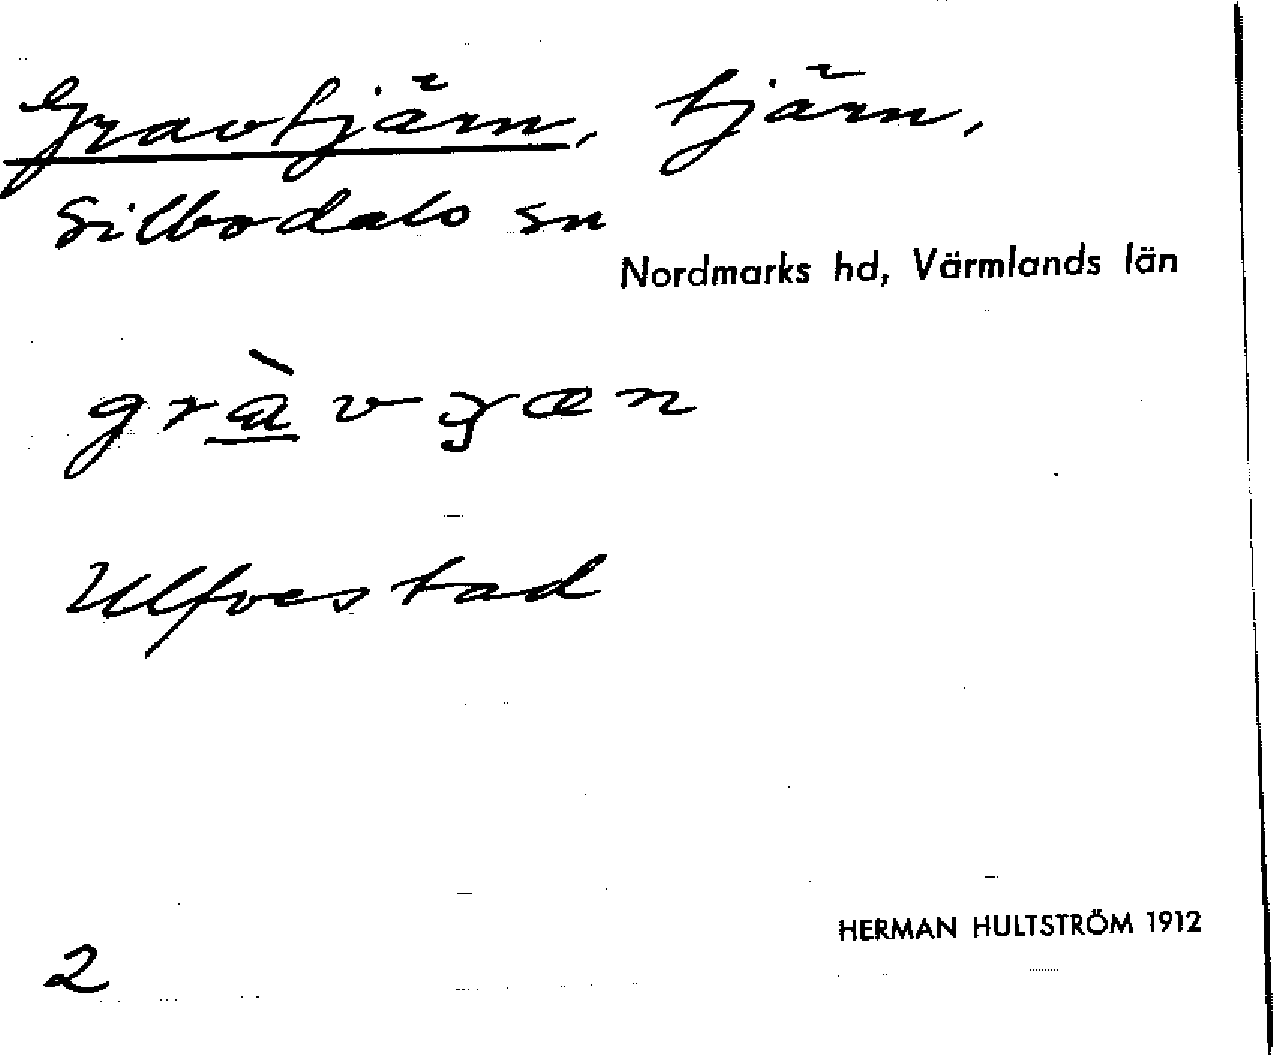 Gravtjärn, tjärn,
Silbodals sn
Nordmarks hd, Värmlands län
Ulfvestad
HERMAN HULTSTRÖM 1912
2